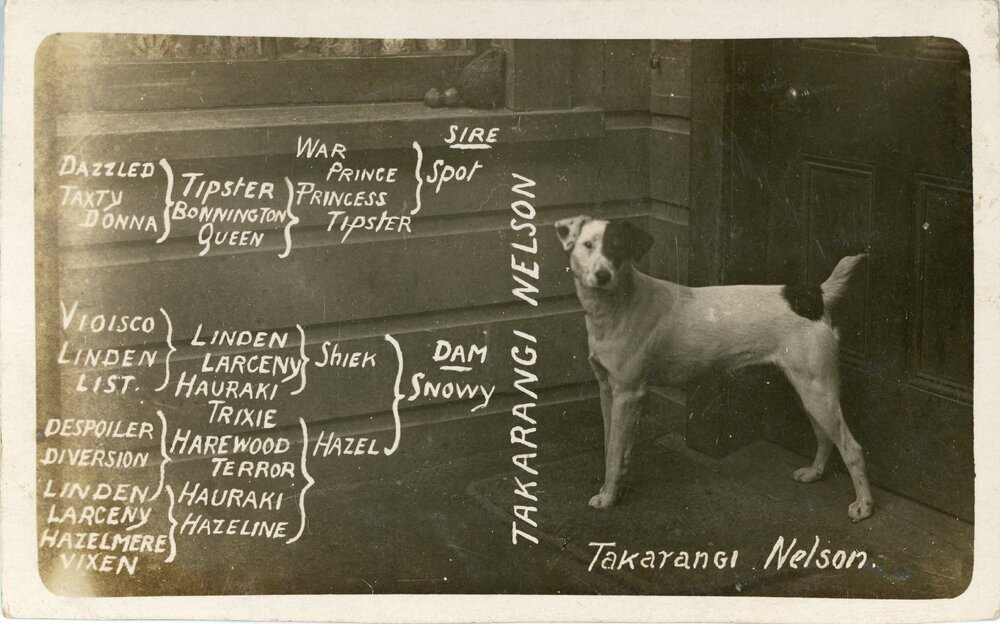 SIRE
Spot
WAR
PRINCE
PRINCESS
TIPSTER
TIPSTER
BONNINGTON
QUEEN
DAZZLED
TAXTY
DONNA
DAM
SNOWY
SHIEK
HAZEL
LINDEN
LARCENY
HAURAKI
TRIXIE
HAREWOOD
TERROR
HAURAKI
HAZELINE
VIOISCO
LINDEN
LIST.
DESPOILER
DIVERSION
LINDEN
LARCENY
HAZELMERE
VIXEN
TAKARANGI NELSON
TAKARANGI NELSON.